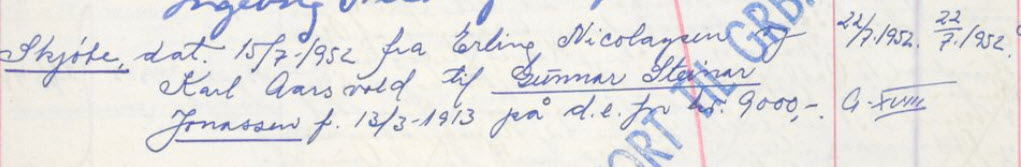 Ingeborg
Skjöte, dat. 15/7-1952 fra Erling Nicolaysen og 22/7.1952. 22/7.1952
Karl Aarsvold til Gunnar Steinar
Jonassen f. 13/3-1913 på d.e. for kr. 9000,- G-XVIII
ORT TIL GRB